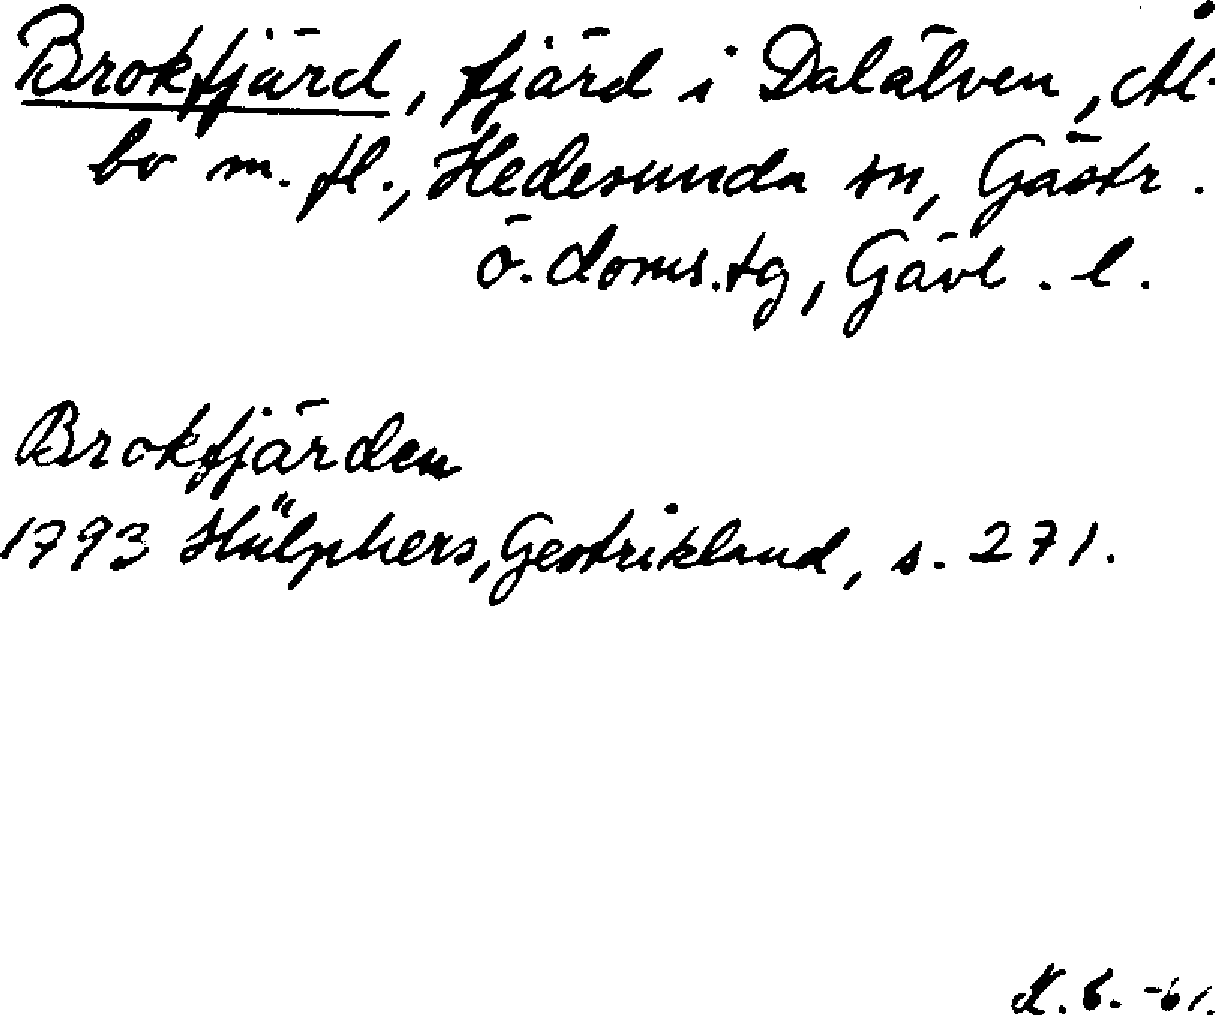 Brokfjärd, fjärd i Dalälven, Ål-
bo m. fl., Hedesunda sn, Gästr.
ö. doms.tg, Gävl. l.
Brokfjärden
1793 Hülphers, Gestrikland, s. 271.
-61.